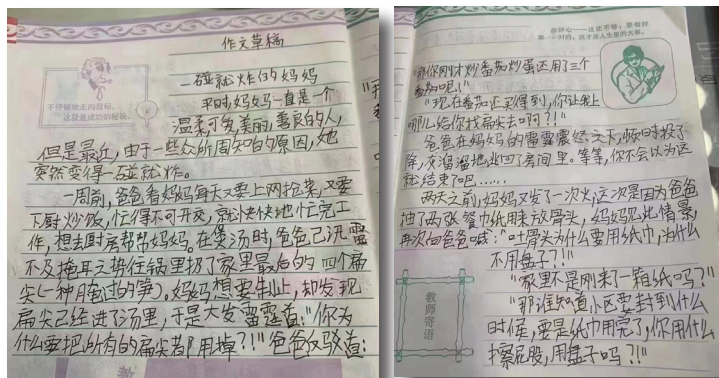 作文草稿
一碰就炸的妈妈
平时,妈妈一直是一个
温柔可爱,美丽,善良的人,
但是最近,由于一些众所周知的原因,她
突然变得一碰就炸。
一周前,爸爸看妈妈每天又要上网抢菜,又要
下厨炒饭,忙得不可开交,就快快地忙完工
作,想去厨房帮帮妈妈。在煲汤时,爸爸已迅雷
不及掩耳之势往锅里扔了家里最后的四个扁
尖(一种腌过的笋)。妈妈想要制止,却发现
扁尖已经进了汤里,于是大发雷霆道:“你为
什么要把所有的扁尖都用掉?!”爸爸反驳道:
不停顿地走向目标,
这就是成功的秘诀。
“那你刚才炒番茄炒蛋还用了三个
番茄呢!”
“现在番茄还买得到,你让我上
哪儿给你找扁尖去啊?!”
爸爸在妈妈的雷霆震怒之下,顿时投了
降,灰溜溜地逃回了房间里。等等,你不会以为这
就结束了吧……
两天之前,妈妈又发了一次火,这次是因为爸爸
抽了两张餐巾纸用来放骨头,妈妈见此情景,
再次向爸爸吼:“吐骨头为什么要用纸巾,为什么
不用盘子?!”
“家里不是刚来了一箱纸吗?”
“那谁知道小区要封到什么
时候,要是纸巾用完了,你用什么
擦屁股,用盘子吗?!”
教师寄语